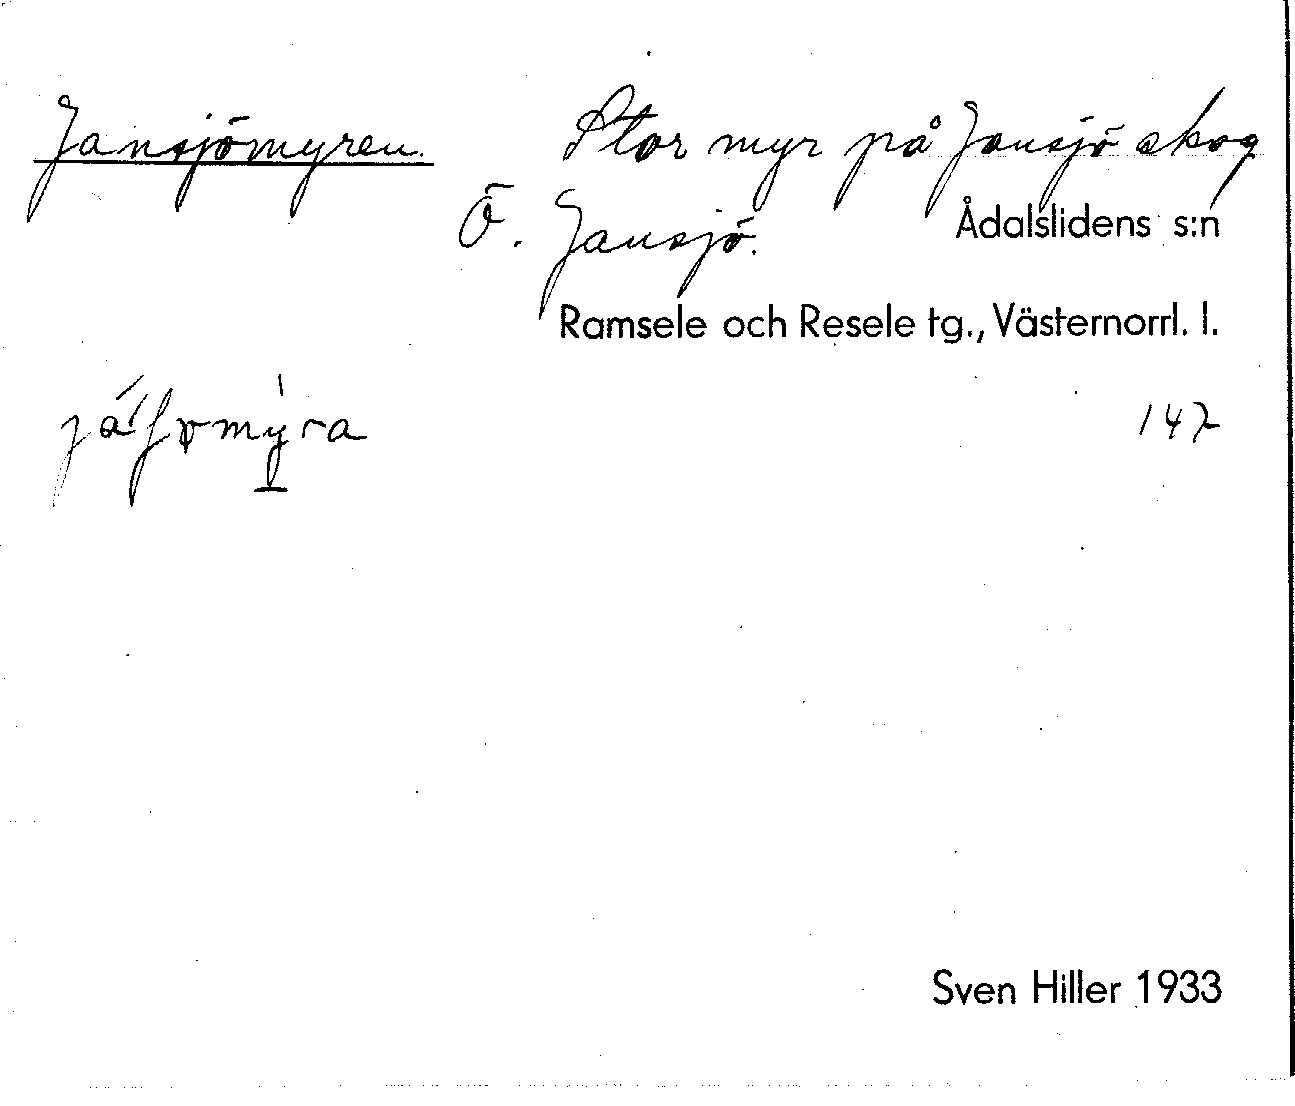 Jansjömyren. Stor myr på Jansjö skog
Ö. Jansjö. Ådalslidens s:n
Ramsele och Resele tg., Västernorrl. l.
147
Sven Hiller 1933